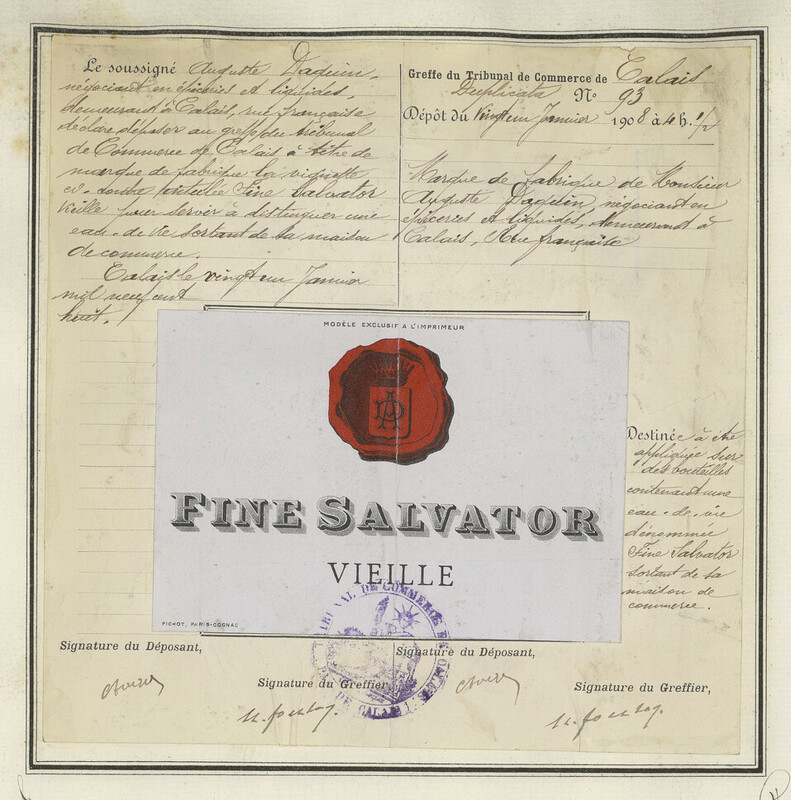 Le soussigné Auguste Daquin,
négociant en épiceries et liquides,
demeurant à Calais, rue française
déclare déposer au greffe du tribunal
de Commerce de Calais à titre de
marque de fabrique la vignette
ci-contre intitulée Fine Salvator
Vieille pour servir à distinguer une
eau-de-vie sortant de sa maison
de commerce.
Calais le vingt un Janvier
mil neuf cent
huit.
Greffe du Tribunal de Commerce de Calais
Duplicata N° 93
Dépôt du vingt un Janvier 1908 à 4 h. 1/2
Marque de fabrique de Monsieur
Auguste Daquin, négociant en
épiceries et liquides, demeurant à
Calais, Rue française
MODÈLE EXCLUSIF A L'IMPRIMEUR
FINE SALVATOR
VIEILLE
PICHOT, PARIS-COGNAC
Destinée à être
appliquée sur
des bouteilles
contenant une
eau-de-vie
dénommée
Fine Salvator
sortant de sa
maison de
commerce.
TRIBUNAL DE COMMERCE
DE CALAIS
Signature du Déposant,
Signature du Greffier,
Signature du Déposant,
Signature du Greffier,